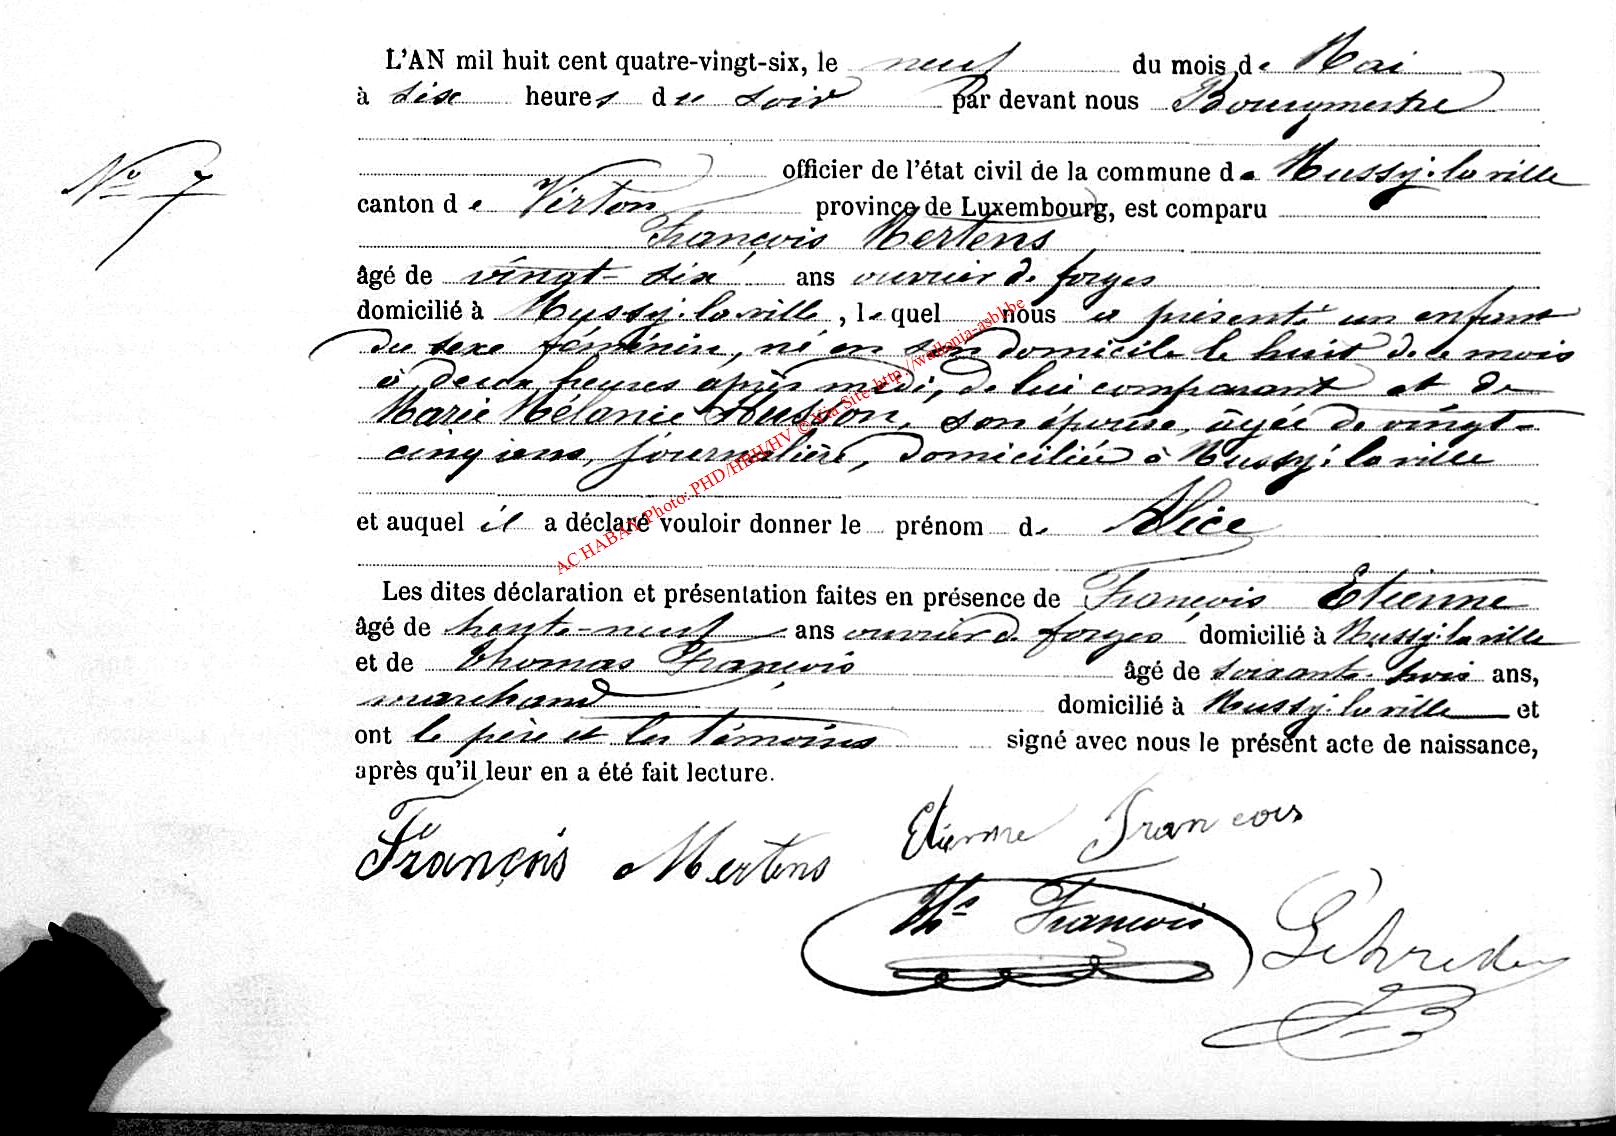 L'AN mil huit cent quatre-vingt-six, le neuf du mois de Mai
à six heures du soir par devant nous Bourgmestre
officier de l'état civil de la commune de Mussy-la-ville
N° 7
canton de Virton province de Luxembourg, est comparu
François Mertens
âgé de vingt-six ans ouvrier de forges
domicilié à Mussy-la-ville, lequel nous a présenté un enfant
du sexe féminin, né en son domicile le huit de ce mois
à deux heures après midi, de lui comparant et de
Marie Mélanie Husson, son épouse, âgée de vingt-
cinq ans, journalière, domiciliée à Mussy-la-ville
et auquel il a déclaré vouloir donner le prénom de Alice
AC HABAY Photo: PHD/HBH/HV © Via Site http://wallonia-asbl.be
Les dites déclaration et présentation faites en présence de François Etienne
âgé de trente-neuf ans ouvrier de forges domicilié à Mussy-la-ville
et de Thomas François âgé de soixante-trois ans,
marchand domicilié à Mussy-la-ville et
ont le père et les témoins signé avec nous le présent acte de naissance,
après qu'il leur en a été fait lecture.
Etienne François
François Mertens
Th^s François